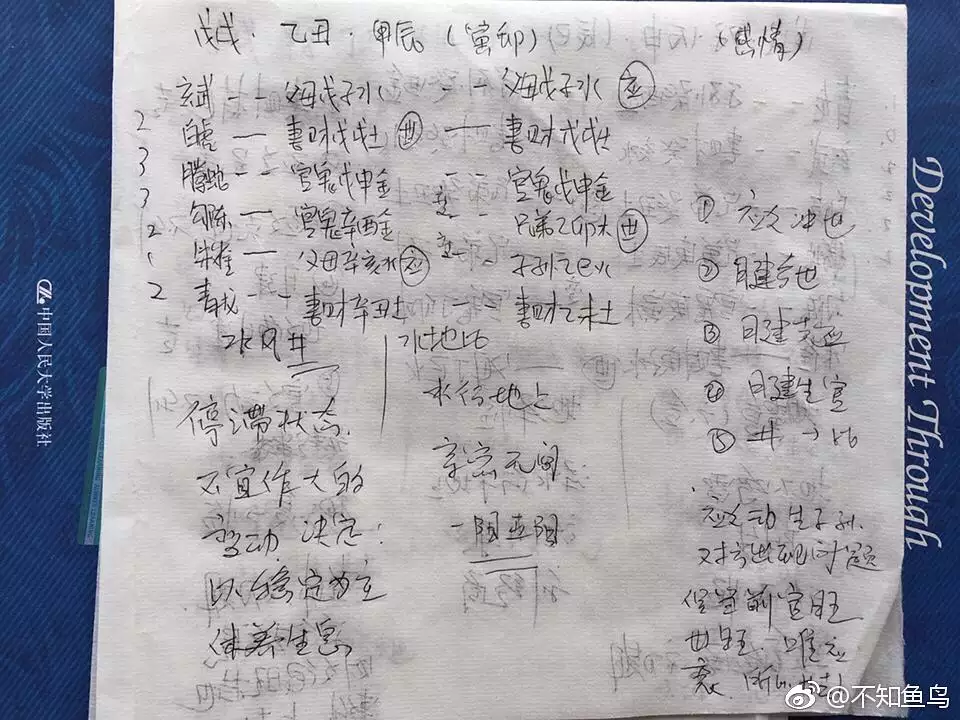 戊戌·乙丑·甲辰(寅卯) (感情)
玄武 -- 父母戊子水 -- 父母戊子水 应
2 白虎 — 妻财戊戌土 世 — 妻财戊戌土
3 腾蛇 -- 官鬼戊申金 -- 官鬼戊申金
3 勾陈 — 官鬼辛酉金 -- 兄弟乙卯木 世
2 朱雀 — 父母辛亥水 应 -- 子孙乙巳火
2 青龙 -- 妻财辛丑土 妻财乙未土
水风井
停滞状态.
不宜作大的
变动 决定:
以稳定为主
休养生息
水地比
水行地上
亲密无间
一阳五阴
① 应爻冲世
② 日建合世
③ 日建
④ 日建生官
⑤ 井→比
应爻动 生子孙.
对方出现问题
官旺
世旺. 唯应
衰.
Development Through
中国人民大学出版社
@不知鱼鸟